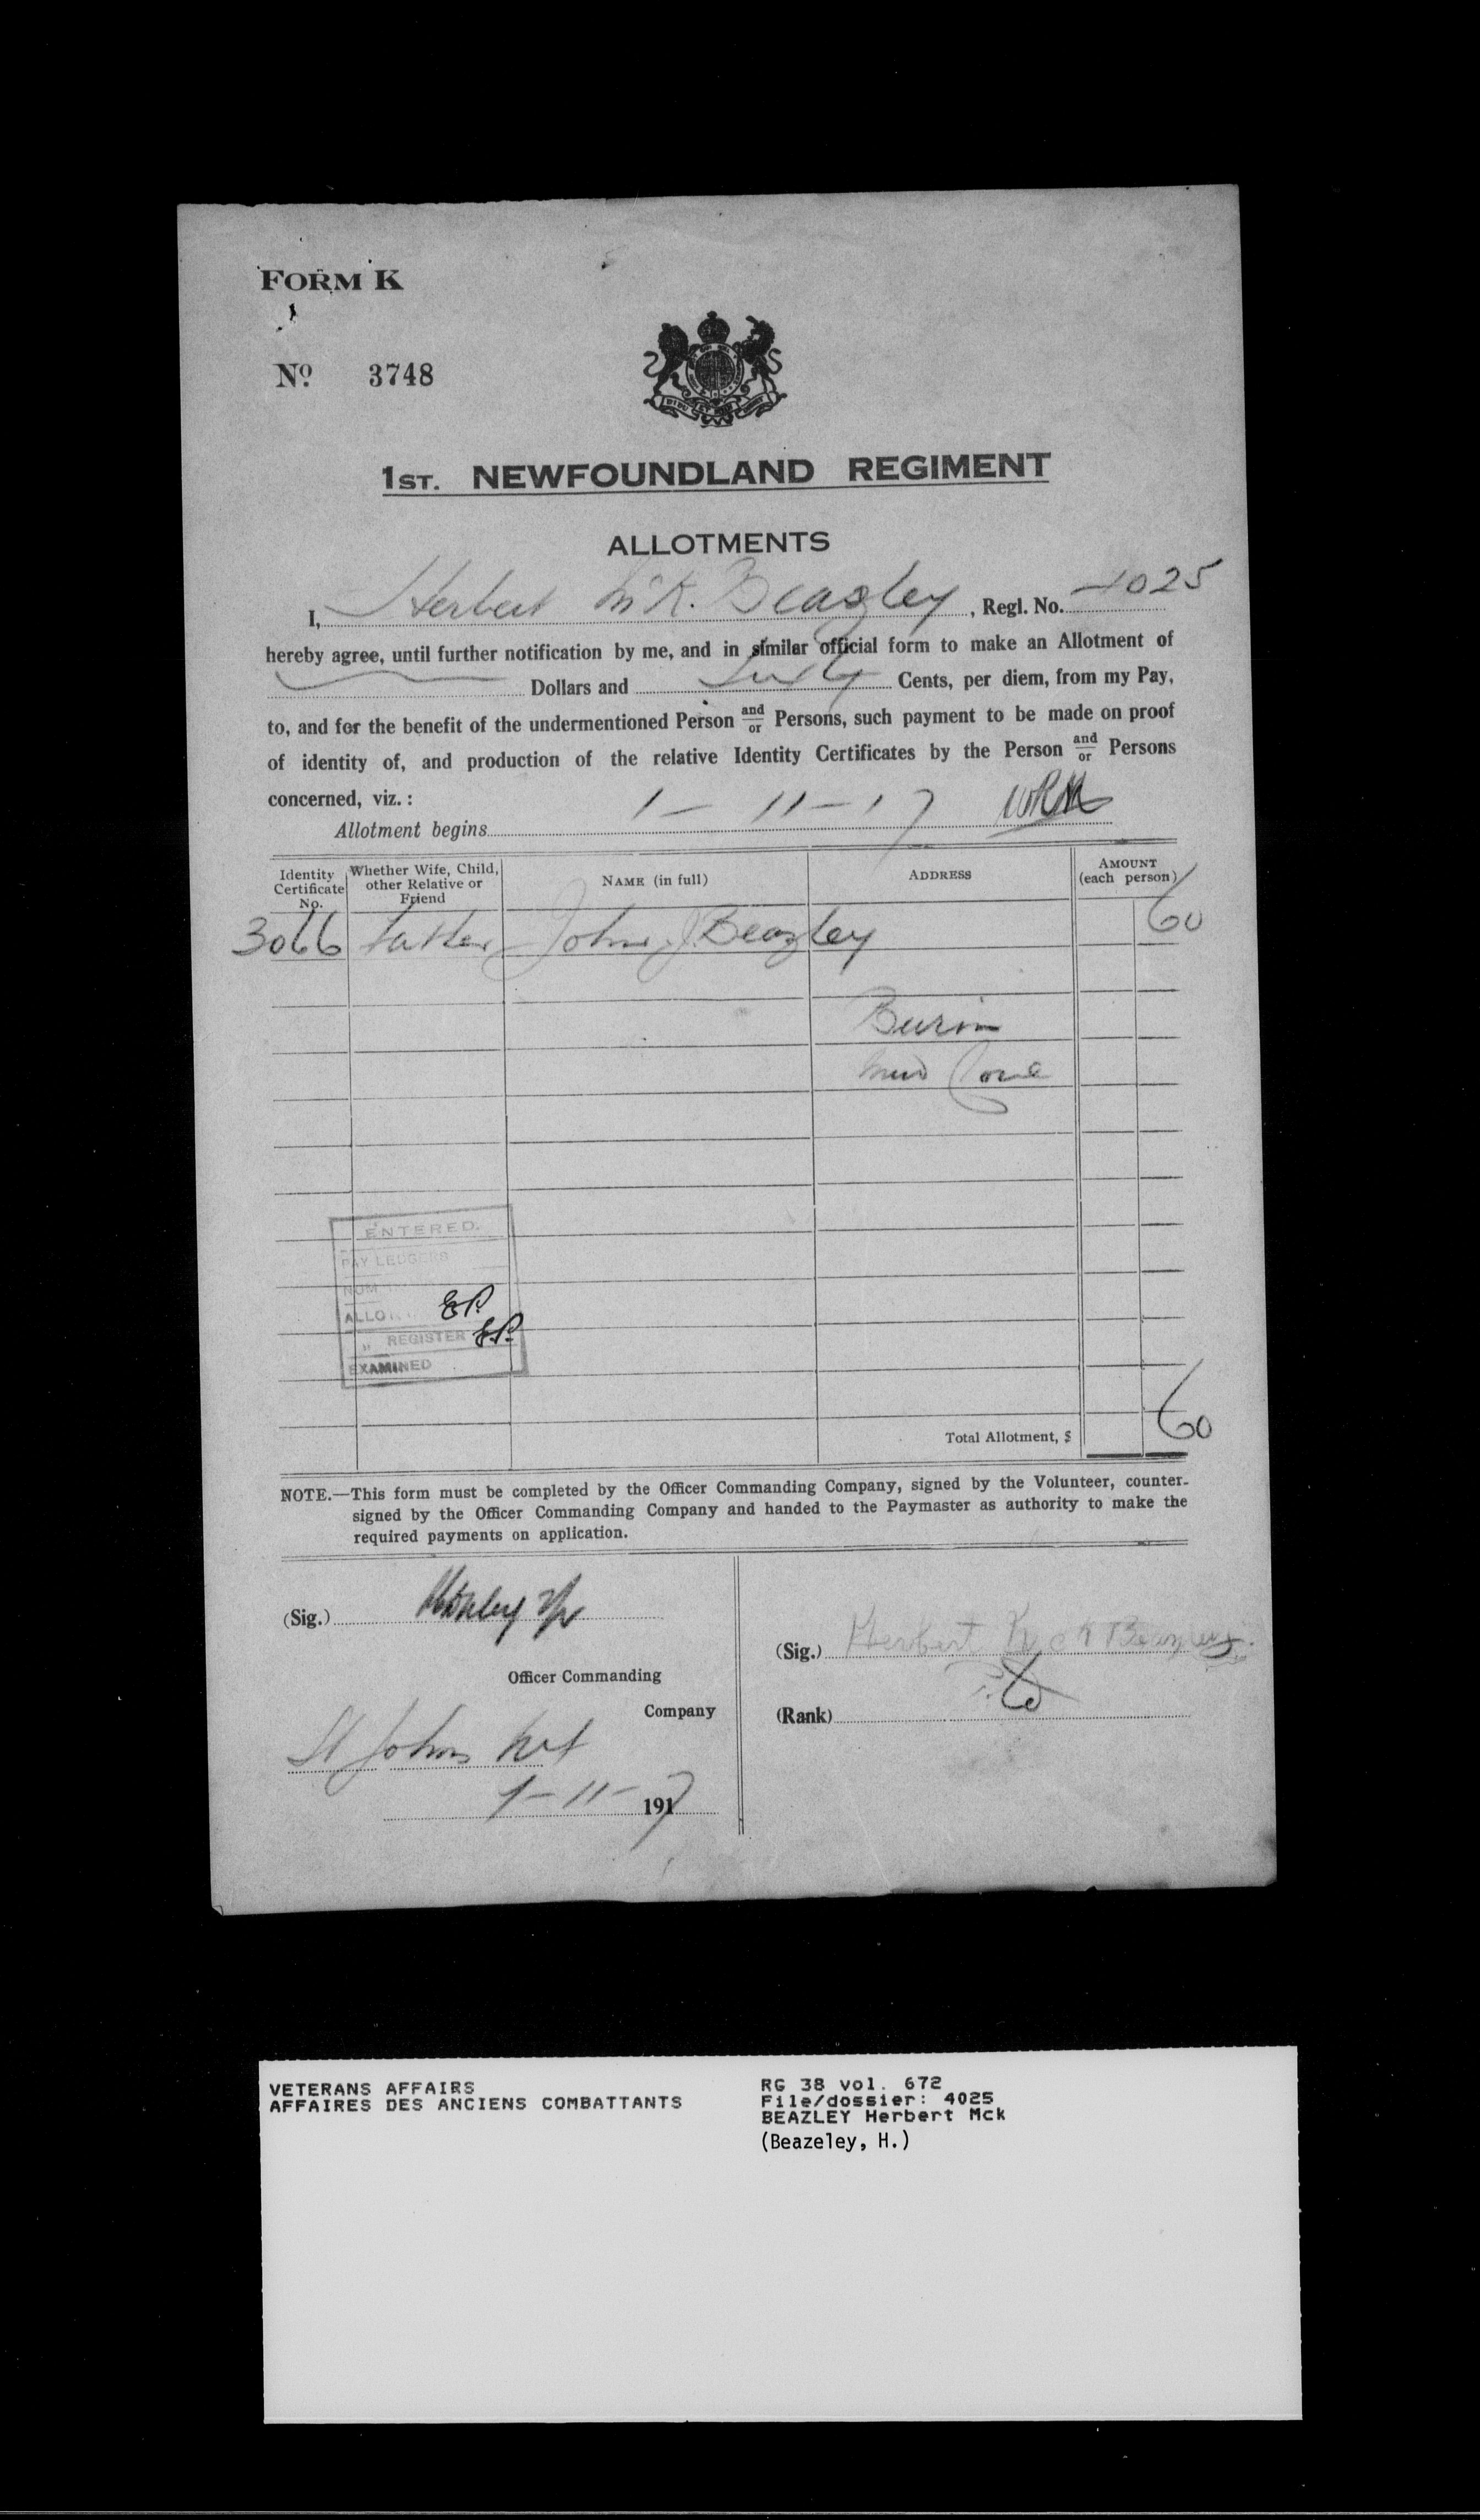 FORM K
No. 3748
1ST. NEWFOUNDLAND REGIMENT
ALLOTMENTS
I, Herbert McK. Beazley, Regl. No. 4025
hereby agree, until further notification by me, and in similar official form to make an Allotment of
Dollars and Sixty Cents, per diem, from my Pay,
to, and for the benefit of the undermentioned Person and/or Persons, such payment to be made on proof
of identity of, and production of the relative Identity Certificates by the Person and/or Persons
concerned, viz.:
Allotment begins 1-11-17 WRM
Identity Certificate No. Whether Wife, Child, other Relative or Friend NAME (in full) ADDRESS AMOUNT (each person)
3066 Father John J. Beazley 60
Burin
Mud Cove
ENTERED.
PAY LEDGERS
NOM
ALLO E.P.
" REGISTER E.P.
EXAMINED
Total Allotment, $ 60
NOTE.—This form must be completed by the Officer Commanding Company, signed by the Volunteer, counter-
signed by the Officer Commanding Company and handed to the Paymaster as authority to make the
required payments on application.
(Sig.)
Officer Commanding
Company
St Johns
1-11-1917
(Sig.) Herbert Beazley
(Rank)
VETERANS AFFAIRS
AFFAIRES DES ANCIENS COMBATTANTS
RG 38 vol. 672
File/dossier: 4025
BEAZLEY Herbert Mck
(Beazeley, H.)